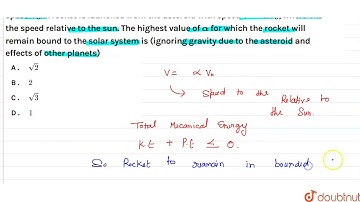 the speed relative to the sun. The highest value of α for which the rocket will
remain bound to the solar system is (ignoring gravity due to the asteroid and
effects of other planets)
A. √2
B. 2
C. √3
D. 1
V = α Ve
↳ Speed to the Relative to
the Sun.
Total Mecanical Energy
K.E + P.E ≤ 0.
So Rocket to remain in bounded
doubtnut